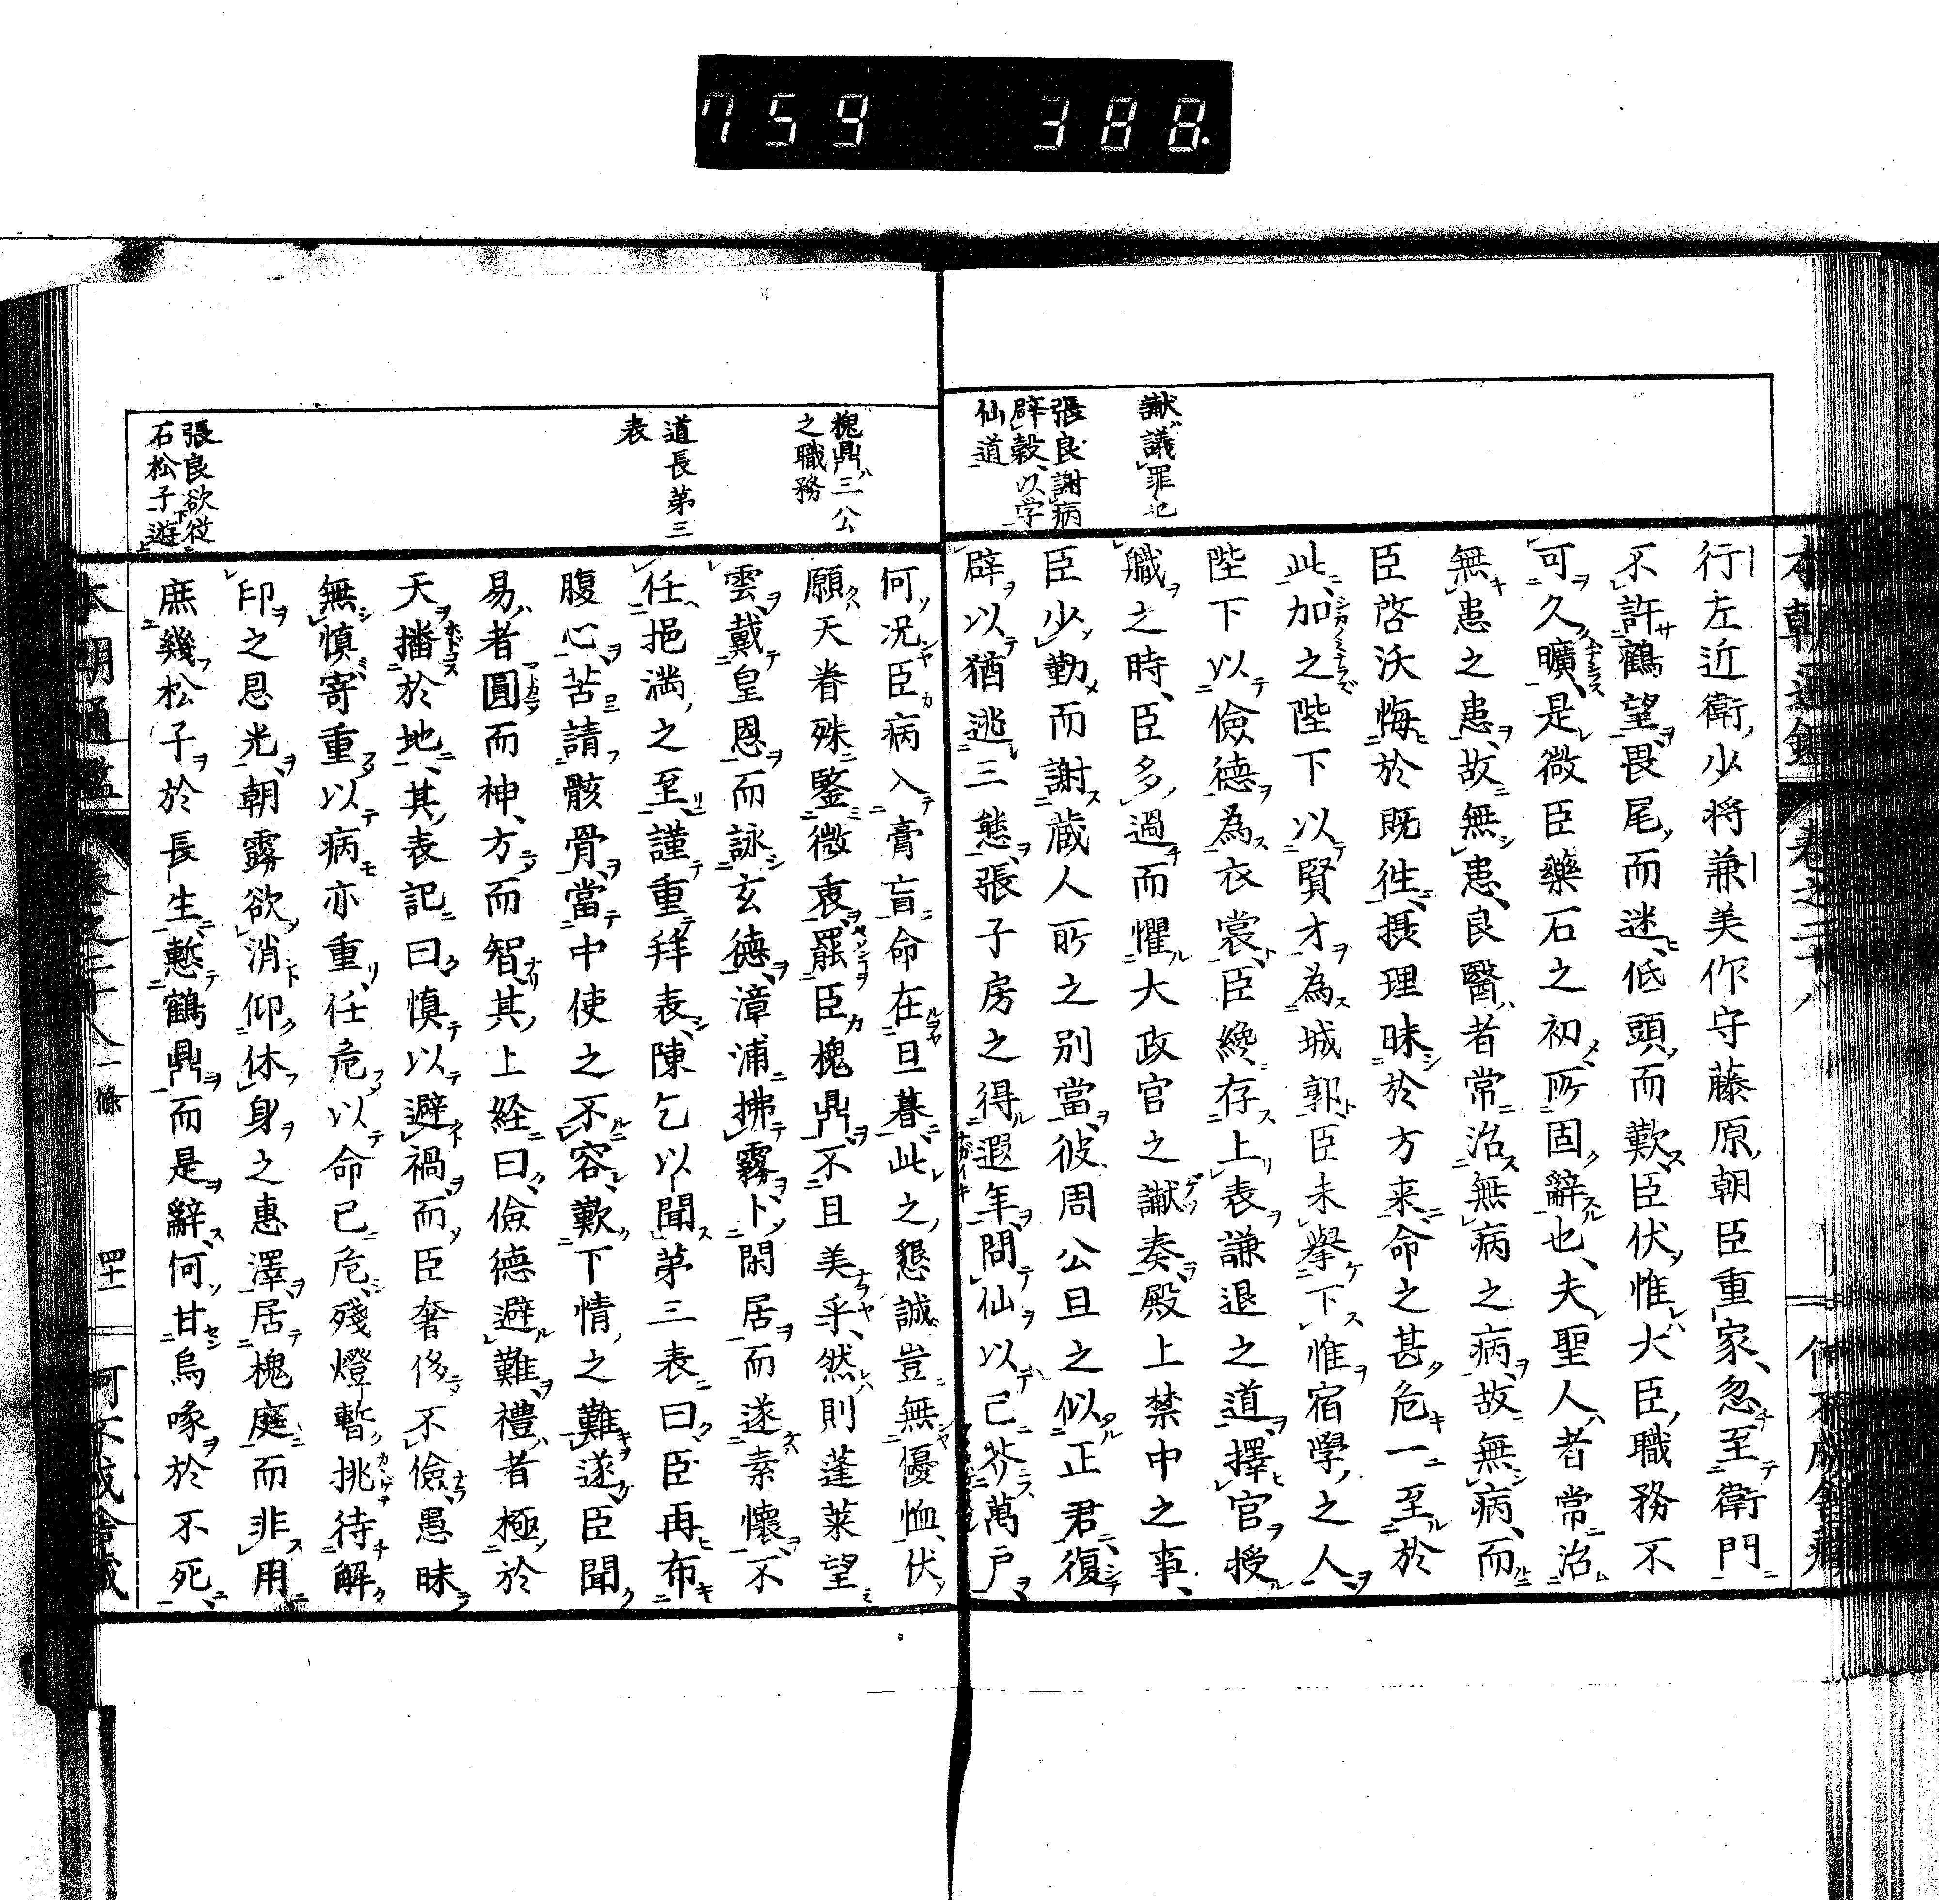 759 388.
本朝通鑑 卷之二十八
讞議罪也
張良謝病
辟穀以学
仙道
行左近衛少将兼美作守藤原朝臣重家忽至衛門
不許鶴望畏尾而迷低頭而歎臣伏惟大臣職務不
可久曠是微臣藥石之初所固辭也夫聖人者常治
無患之患故無患良醫者常治無病之病故無病而
臣啓沃悔於既徃摂理昧於方来命之甚危一至於
此加之陛下以賢才為城郭臣未擧下惟宿學之人
陛下以儉德為衣裳臣纔存上表謙退之道擇官授
職之時臣多過而懼大政官之讞奏殿上禁中之事
臣少勤而謝蔵人所之別當彼周公旦之似正君復
辟以猶逃三態張子房之得遐年問仙以己芥萬戸
槐鼎三公
之職務
道長第三
表
張良欲従
石松子遊
何况臣病入膏盲命在旦暮此之懇誠豈無優恤伏
願天眷殊鑒微衷罷臣槐鼎不且美乎然則蓬莱望
雲戴皇恩而詠玄德漳浦拂霧卜閑居而遂素懐不
任挹満之至謹重拜表陳乞以聞第三表曰臣再布
腹心苦請骸骨當中使之不容歎下情之難遂臣聞
易者圓而神方而智其上経曰儉德避難禮者極於
天播於地其表記曰慎以避禍而臣奢侈不儉愚昧
無慎寄重以病亦重任危以命已危殘燈暫挑待解
印之恩光朝露欲消仰休身之惠澤居槐庭而非用
庶幾松子於長生慙鶴鼎而是辭何甘烏喙於不死
四十一